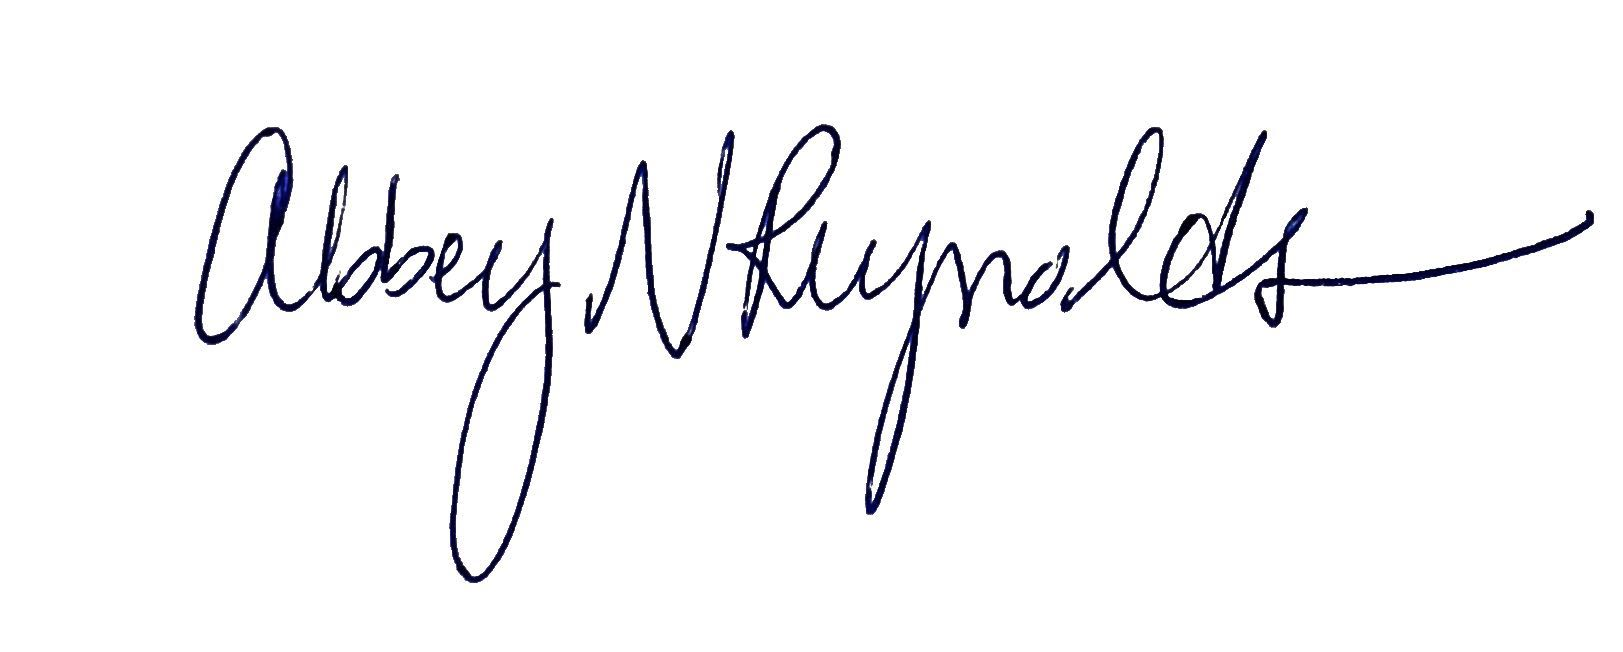 Abbey N Reynolds